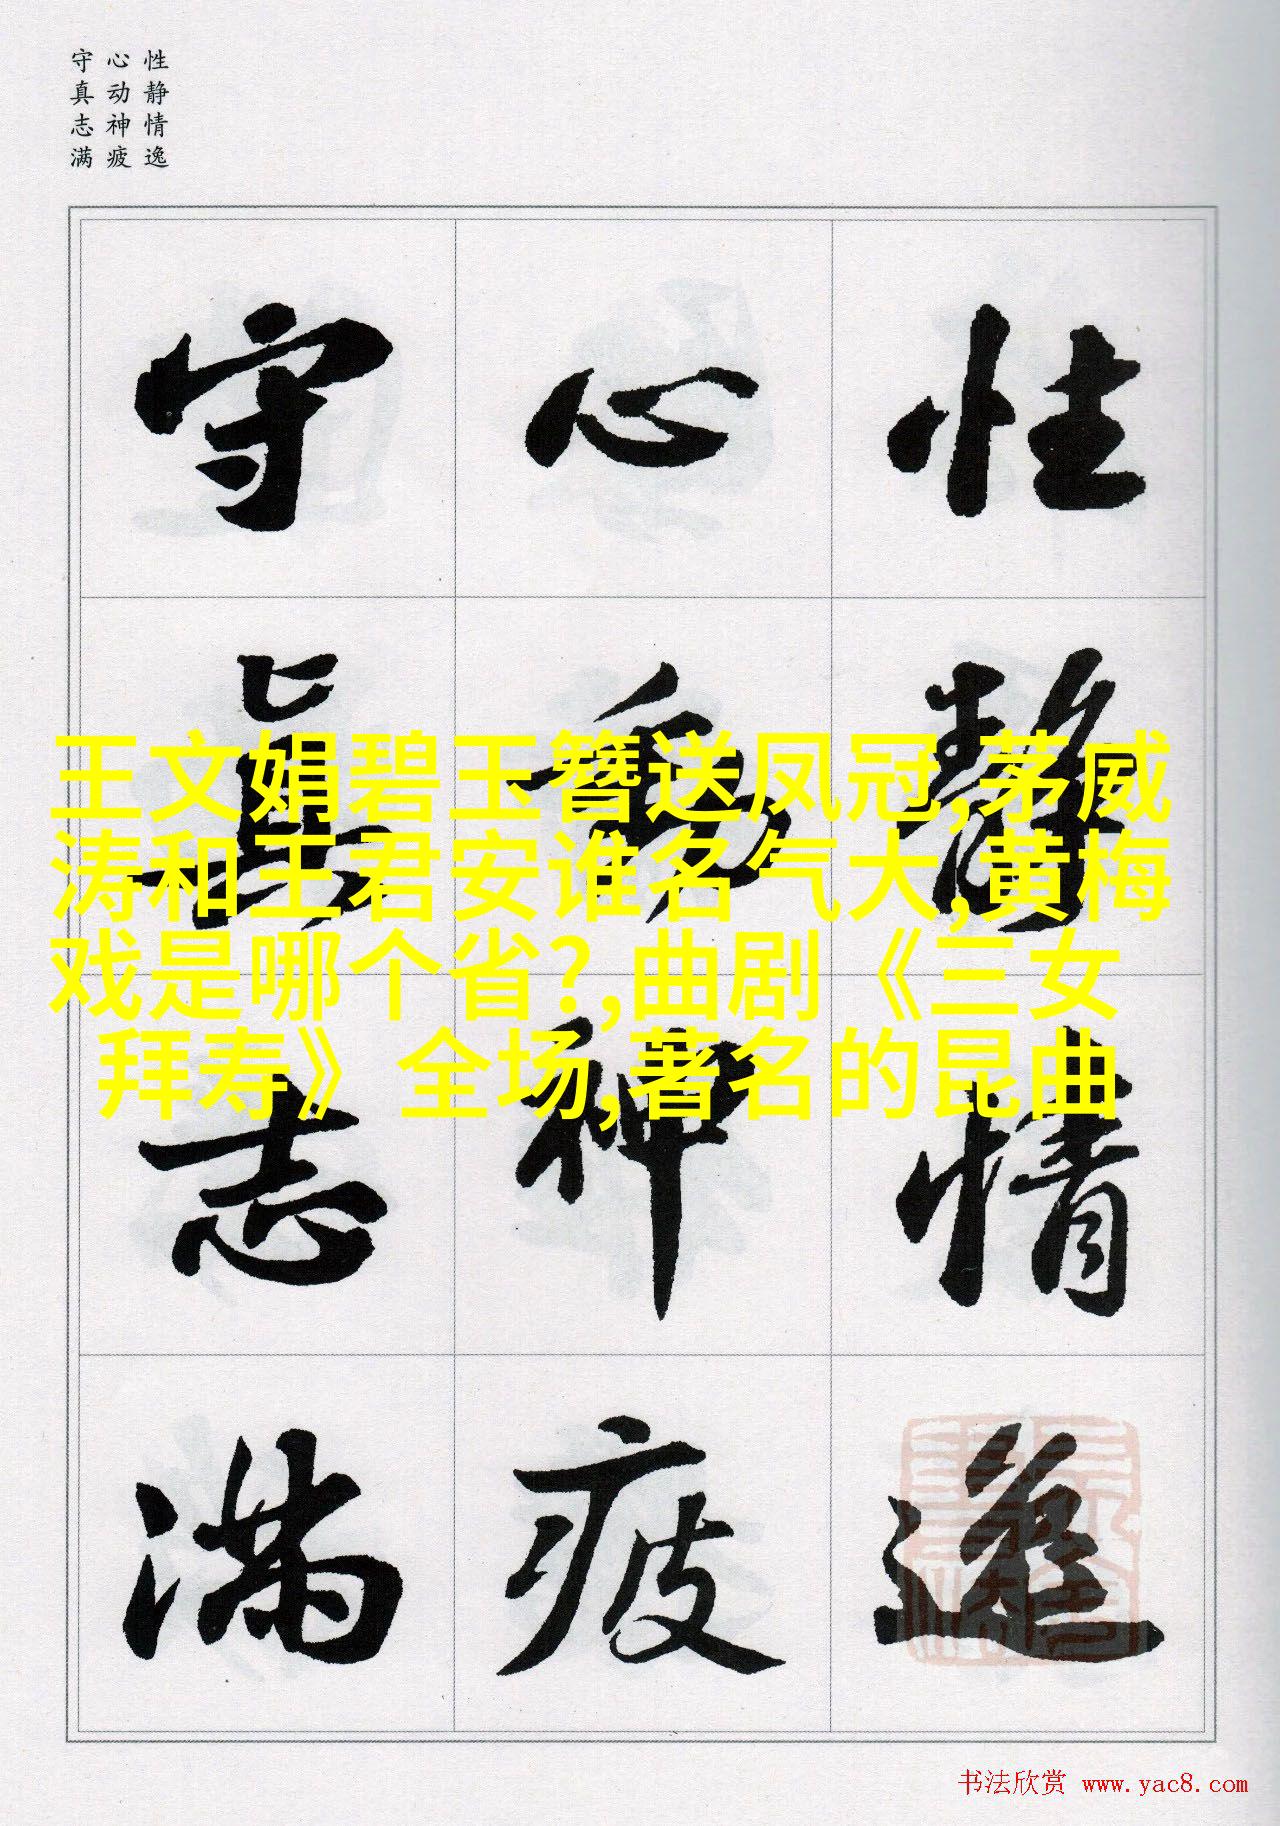 性静情逸
心动神疲
守真志满
性静情逸
心動神疲
守真志满
王文娟碧玉簪送凤冠,茅威
涛和王君安谁名气大,黄梅
戏是哪个省?,曲剧《三女
拜寿》全场,著名的昆曲
书法欣赏 www.yac8.com